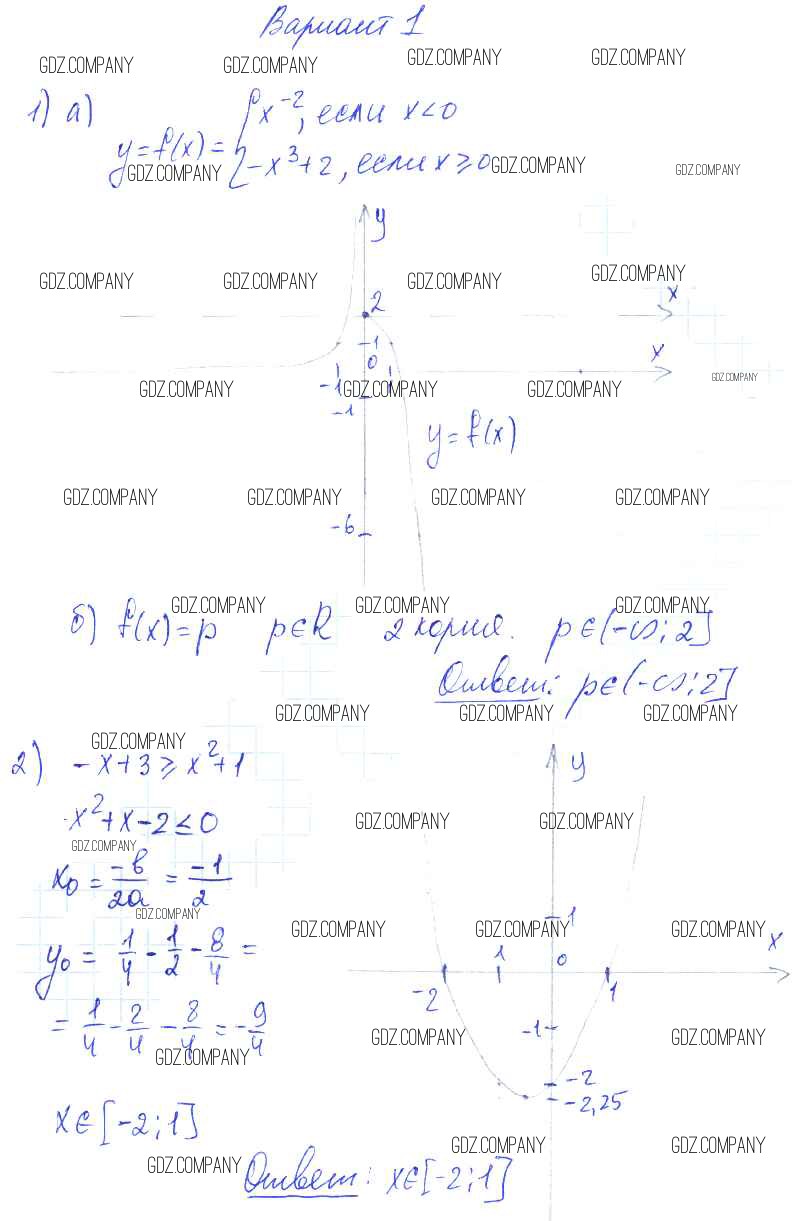 Вариант 1
GDZ.COMPANY GDZ.COMPANY GDZ.COMPANY GDZ.COMPANY
1) а) y = f(x) = { x⁻², если x < 0
-x³ + 2, если x ≥ 0
GDZ.COMPANY GDZ.COMPANY GDZ.COMPANY
y
GDZ.COMPANY GDZ.COMPANY GDZ.COMPANY GDZ.COMPANY
2 x
1
0 x
-1 1
GDZ.COMPANY GDZ.COMPANY GDZ.COMPANY GDZ.COMPANY
-1
y = f(x)
GDZ.COMPANY GDZ.COMPANY GDZ.COMPANY GDZ.COMPANY
-6
GDZ.COMPANY GDZ.COMPANY GDZ.COMPANY
б) f(x) = p p∈R 2 корня. p∈(-∞; 2]
Ответ: p∈(-∞; 2]
GDZ.COMPANY GDZ.COMPANY GDZ.COMPANY
GDZ.COMPANY
2) -x + 3 ≥ x² + 1
y
x² + x - 2 ≤ 0
GDZ.COMPANY GDZ.COMPANY
GDZ.COMPANY
x₀ = -b/2a = -1/2
GDZ.COMPANY
1
GDZ.COMPANY GDZ.COMPANY GDZ.COMPANY
y₀ = 1/4 - 1/2 - 8/4 =
x
1 0
-2 1
= 1/4 - 2/4 - 8/4 = -9/4
-1
GDZ.COMPANY GDZ.COMPANY
GDZ.COMPANY
-2
-2,25
x∈[-2; 1]
GDZ.COMPANY GDZ.COMPANY
GDZ.COMPANY
Ответ: x∈[-2; 1]